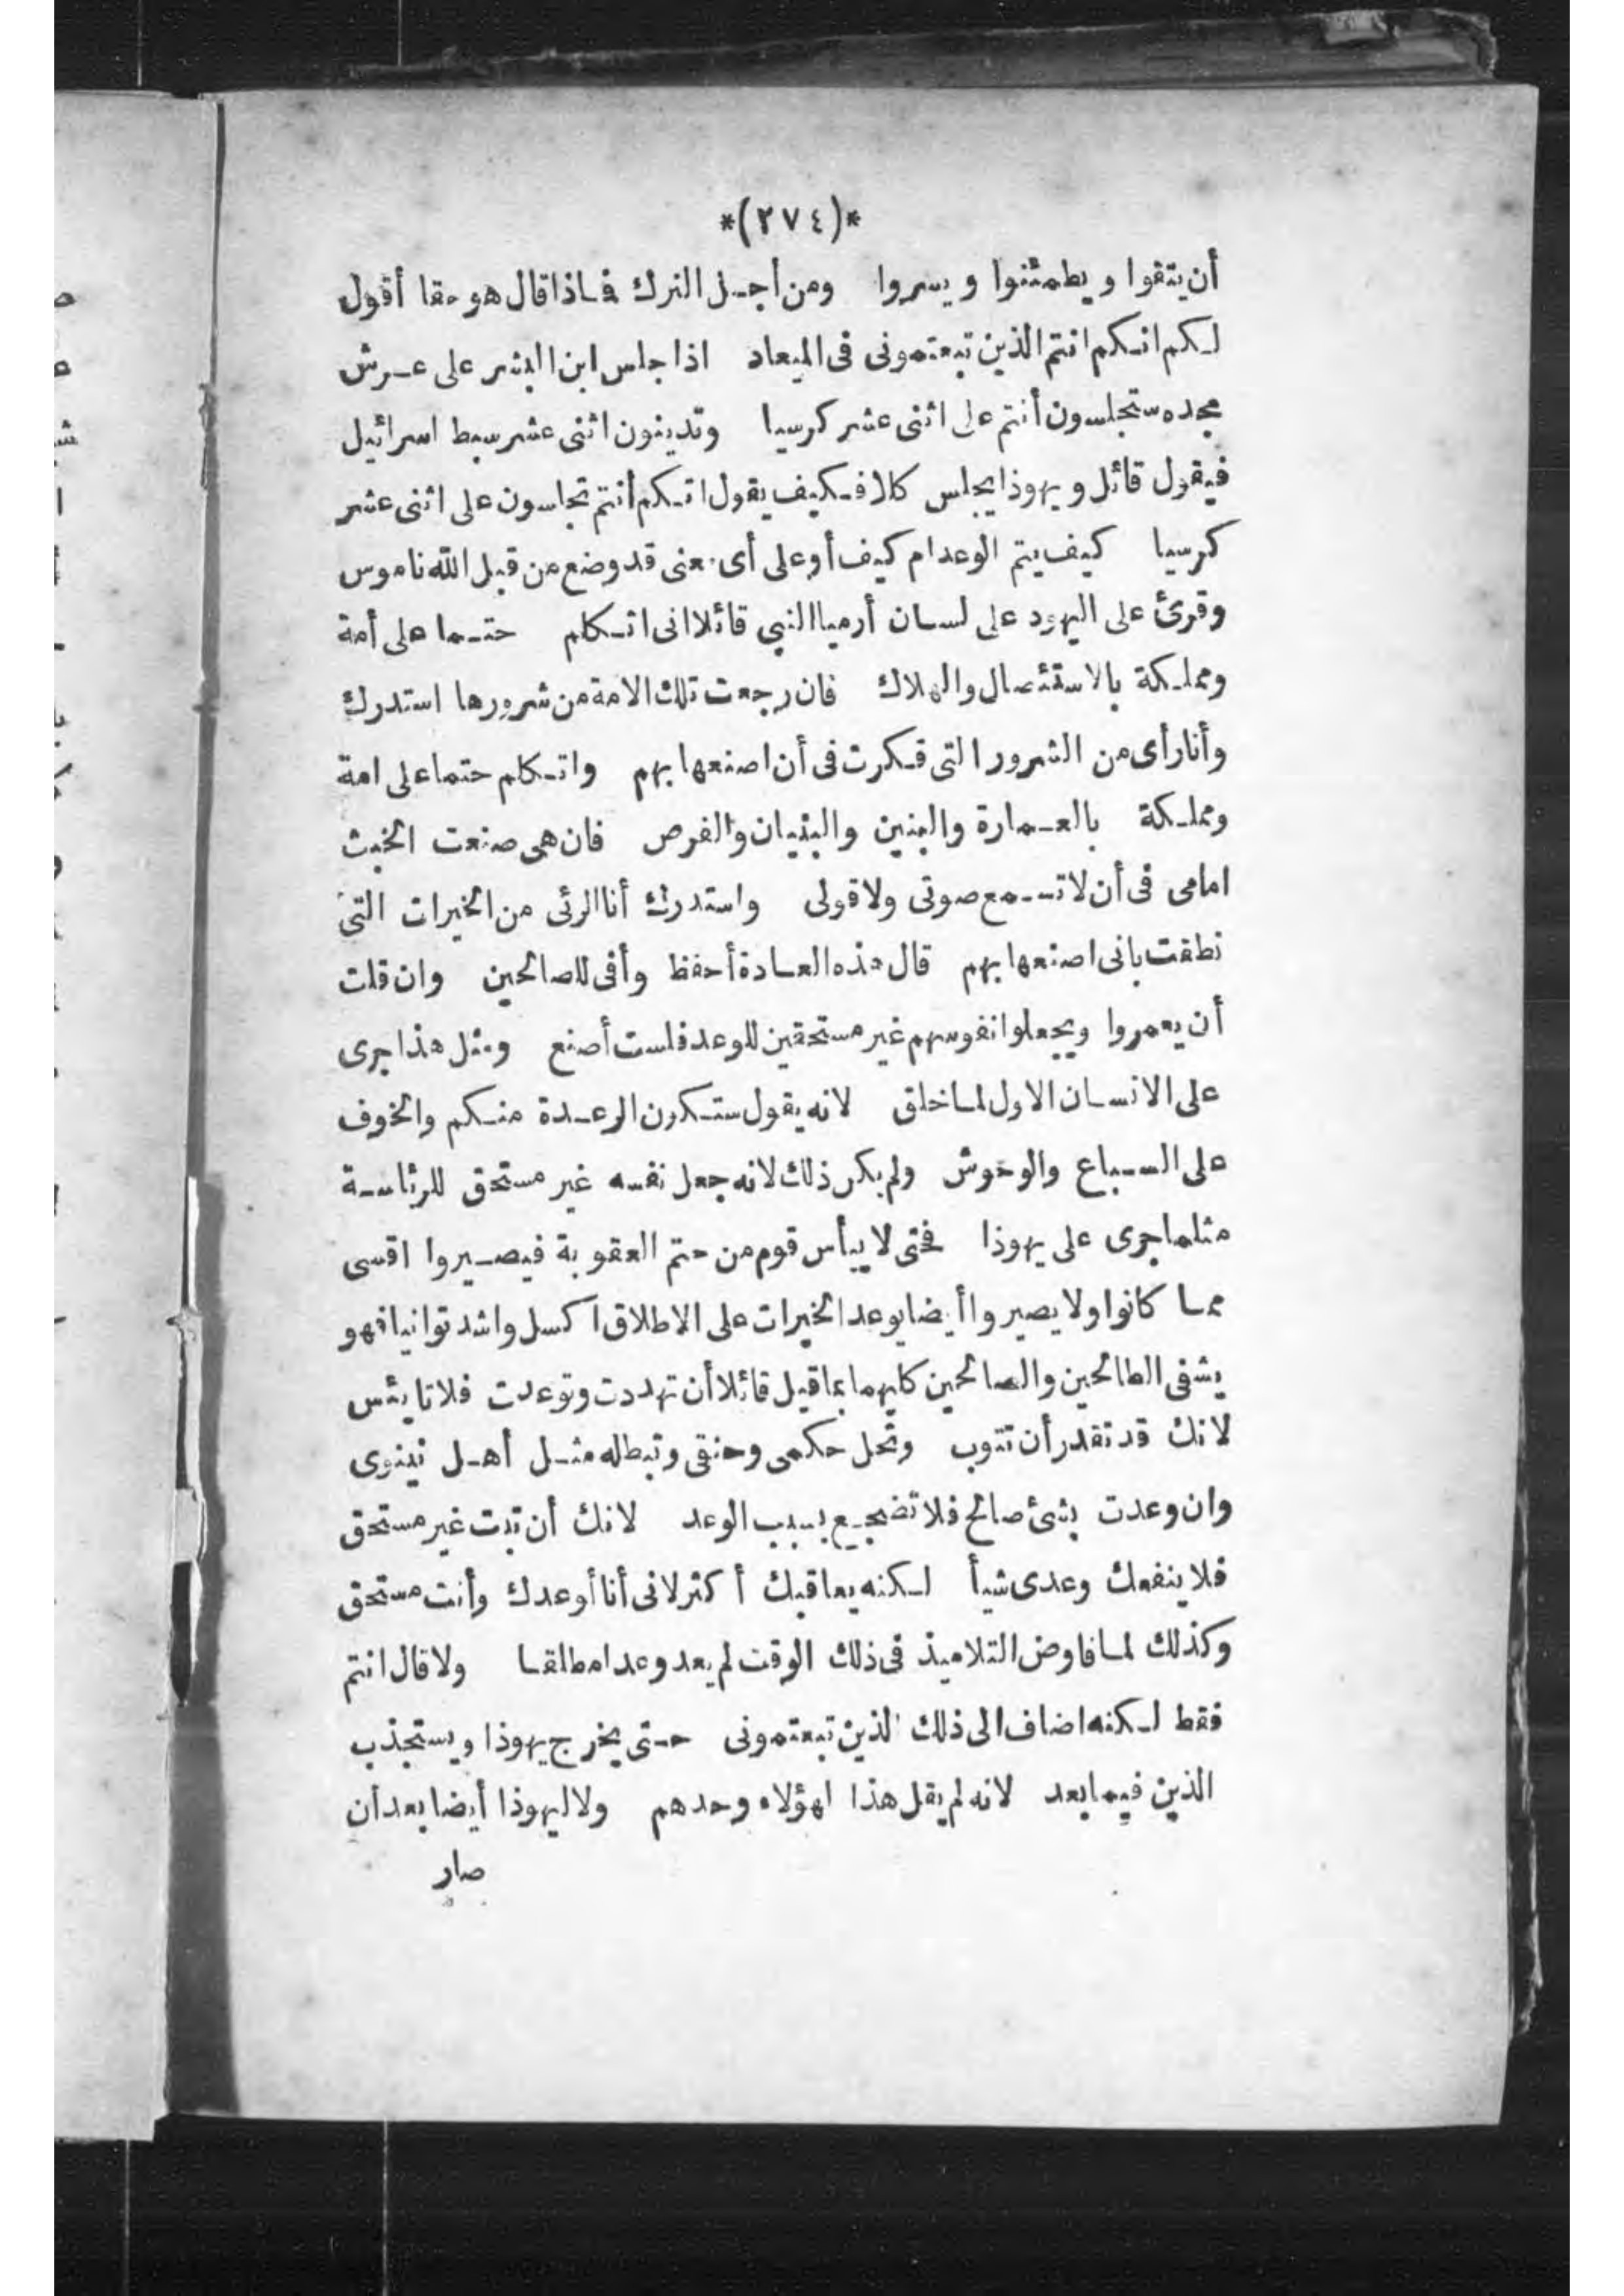 *(٢٧٤)*
أن يتقوا ويطمئنوا ويسروا ومن أجل الترك فاذا قال هو حقا أقول
لكم انكم انتم الذين تبعتمونى فى الميعاد اذا جلس ابن البشر على عرش
مجده ستجلسون أنتم على اثنى عشر كرسيا وتدينون اثنى عشر سبط اسرائيل
فيقول قائل ويهوذا يجلس كلا فكيف يقول انكم أنتم تجلسون على اثنى عشر
كرسيا كيف يتم الوعد ام كيف أوعلى أى معنى قد وضع من قبل الله ناموس
وقرئ على اليهود على لسان أرميا النبي قائلا انى اتكلم حتما على أمة
ومملكة بالاستئصال والهلاك فان رجعت تلك الامة من شرورها استدرك
وأنا رأى من الشرور التى فكرت فى أن اصنعها بهم واتكلم حتما على امة
ومملكة بالعمارة والبنين والبنيان والغرص فان هى صنعت الخبث
امامى فى أن لا تسمع صوتى ولا قولى واستدرك أنا الرئى من الخيرات التى
نطقت بانى اصنعها بهم قال هذه العادة أحفظ وأفى للصالحين وان قلت
أن يعمروا ويجعلوا نفوسهم غير مستحقين للوعد فلست أصنع ومثل هذا جرى
على الانسان الاول لما خلق لانه يقول ستكون الرعدة منكم والخوف
على السباع والوحوش ولم يكن ذلك لانه جعل نفسه غير مستحق للرئاسة
مثلما جرى على يهوذا فحتى لا ييأس قوم من حتم العقوبة فيصيروا اقسى
مما كانوا ولا يصيروا أيضا بوعد الخيرات على الاطلاق اكسل واشد توانيا فهو
يشفى الطالحين والصالحين كليهما بما قيل قائلا أن تهددت وتوعدت فلا تايئس
لانك قد تقدر أن تتوب وتحل حكمى وحنقى وتبطله مثل أهل نينوى
وان وعدت بشئ صالح فلا تضجع بسبب الوعد لانك أن تبت غير مستحق
فلا ينفعك وعدى شيأ لكنه يعاقبك أكثر لانى أنا أوعدك وأنت مستحق
وكذلك لما فاوض التلاميذ فى ذلك الوقت لم يعد وعدا مطلقا ولا قال انتم
فقط لكنه اضاف الى ذلك الذين تبعتمونى حتى يخرج يهوذا ويستجذب
الذين فيما بعد لانه لم يقل هذا لهؤلاء وحدهم ولا ليهوذا أيضا بعد أن
صار